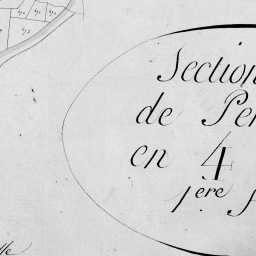 Section
de Per
en 4
1ère f
lle